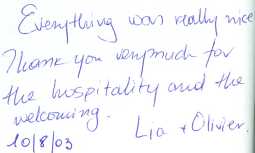 Everything was really nice
Thank you verymuch for
the hospitality and the
welcoming.
Lia + Olivier.
10/8/03